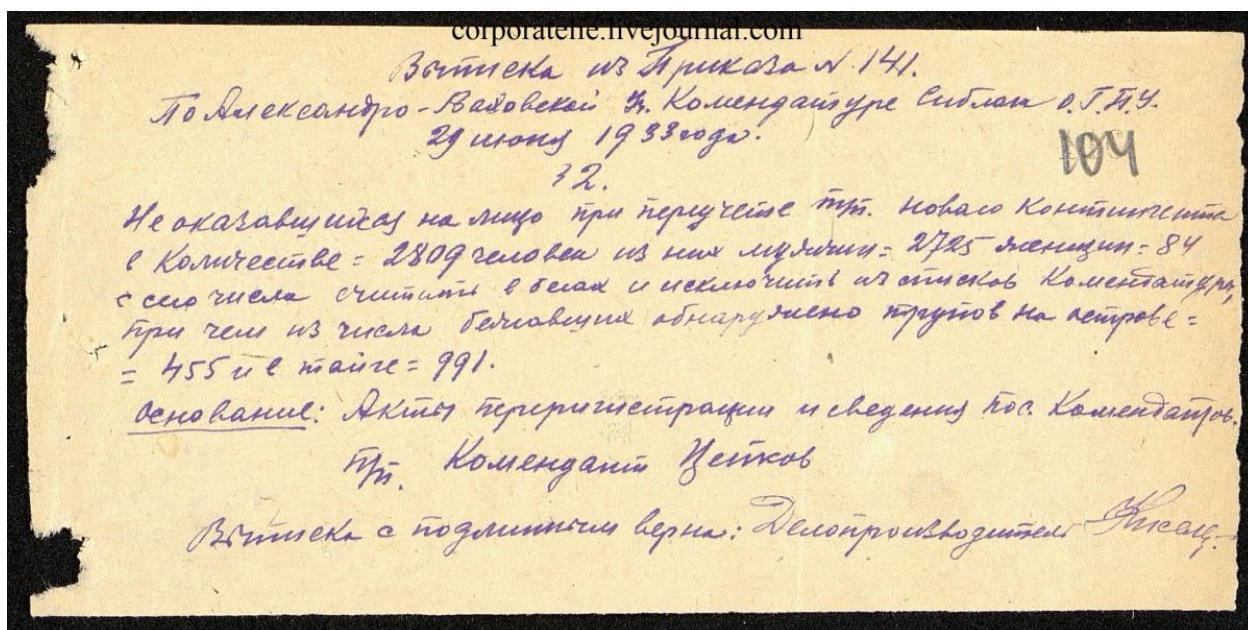 corporatelie.livejournal.com
Выписка из Приказа N 141.
По Александро-Ваховской Уч. Комендатуре Сиблаг о.Г.П.У.
29 июня 1933 года.
104
§ 2.
Не оказавшийся на лицо при переучете тр/п. нового Контингента
в Количестве = 2809 человек из них мужчин = 2725 женщин = 84
с сего числа считать в бегах и исключить из списков Комендатуры,
при чем из числа бежавших обнаружено трупов на острове =
= 455 и в тайге = 991.
Основание: Акты перерегистрации и сведения пос. Комендатров.
Комендант Цепков
Выписка с подлинным верна: Делопроизводитель